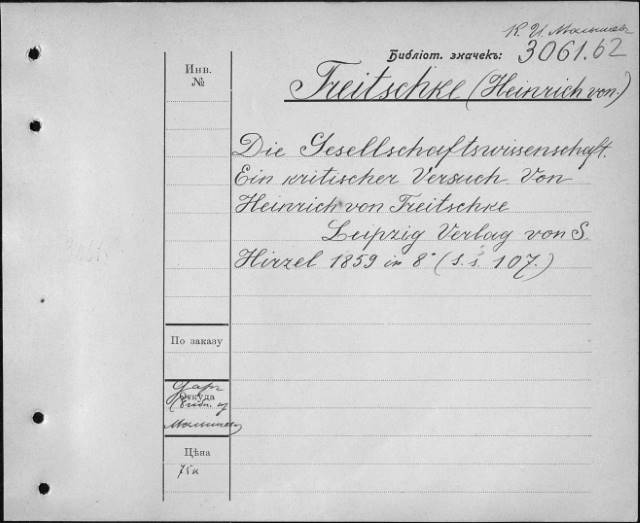 К. И. Малышев
Библіот. значекъ: 3061.62
Инв.
№
Treitschke (Heinrich von.)
Die Gesellschaftswissenschaft.
Ein kritischer Versuch von
Heinrich von Treitschke
Leipzig Verlag von S.
Hirzel 1859 in 8° (s. s. 107.)
По заказу
Откуда
Дар
Цѣна
75к